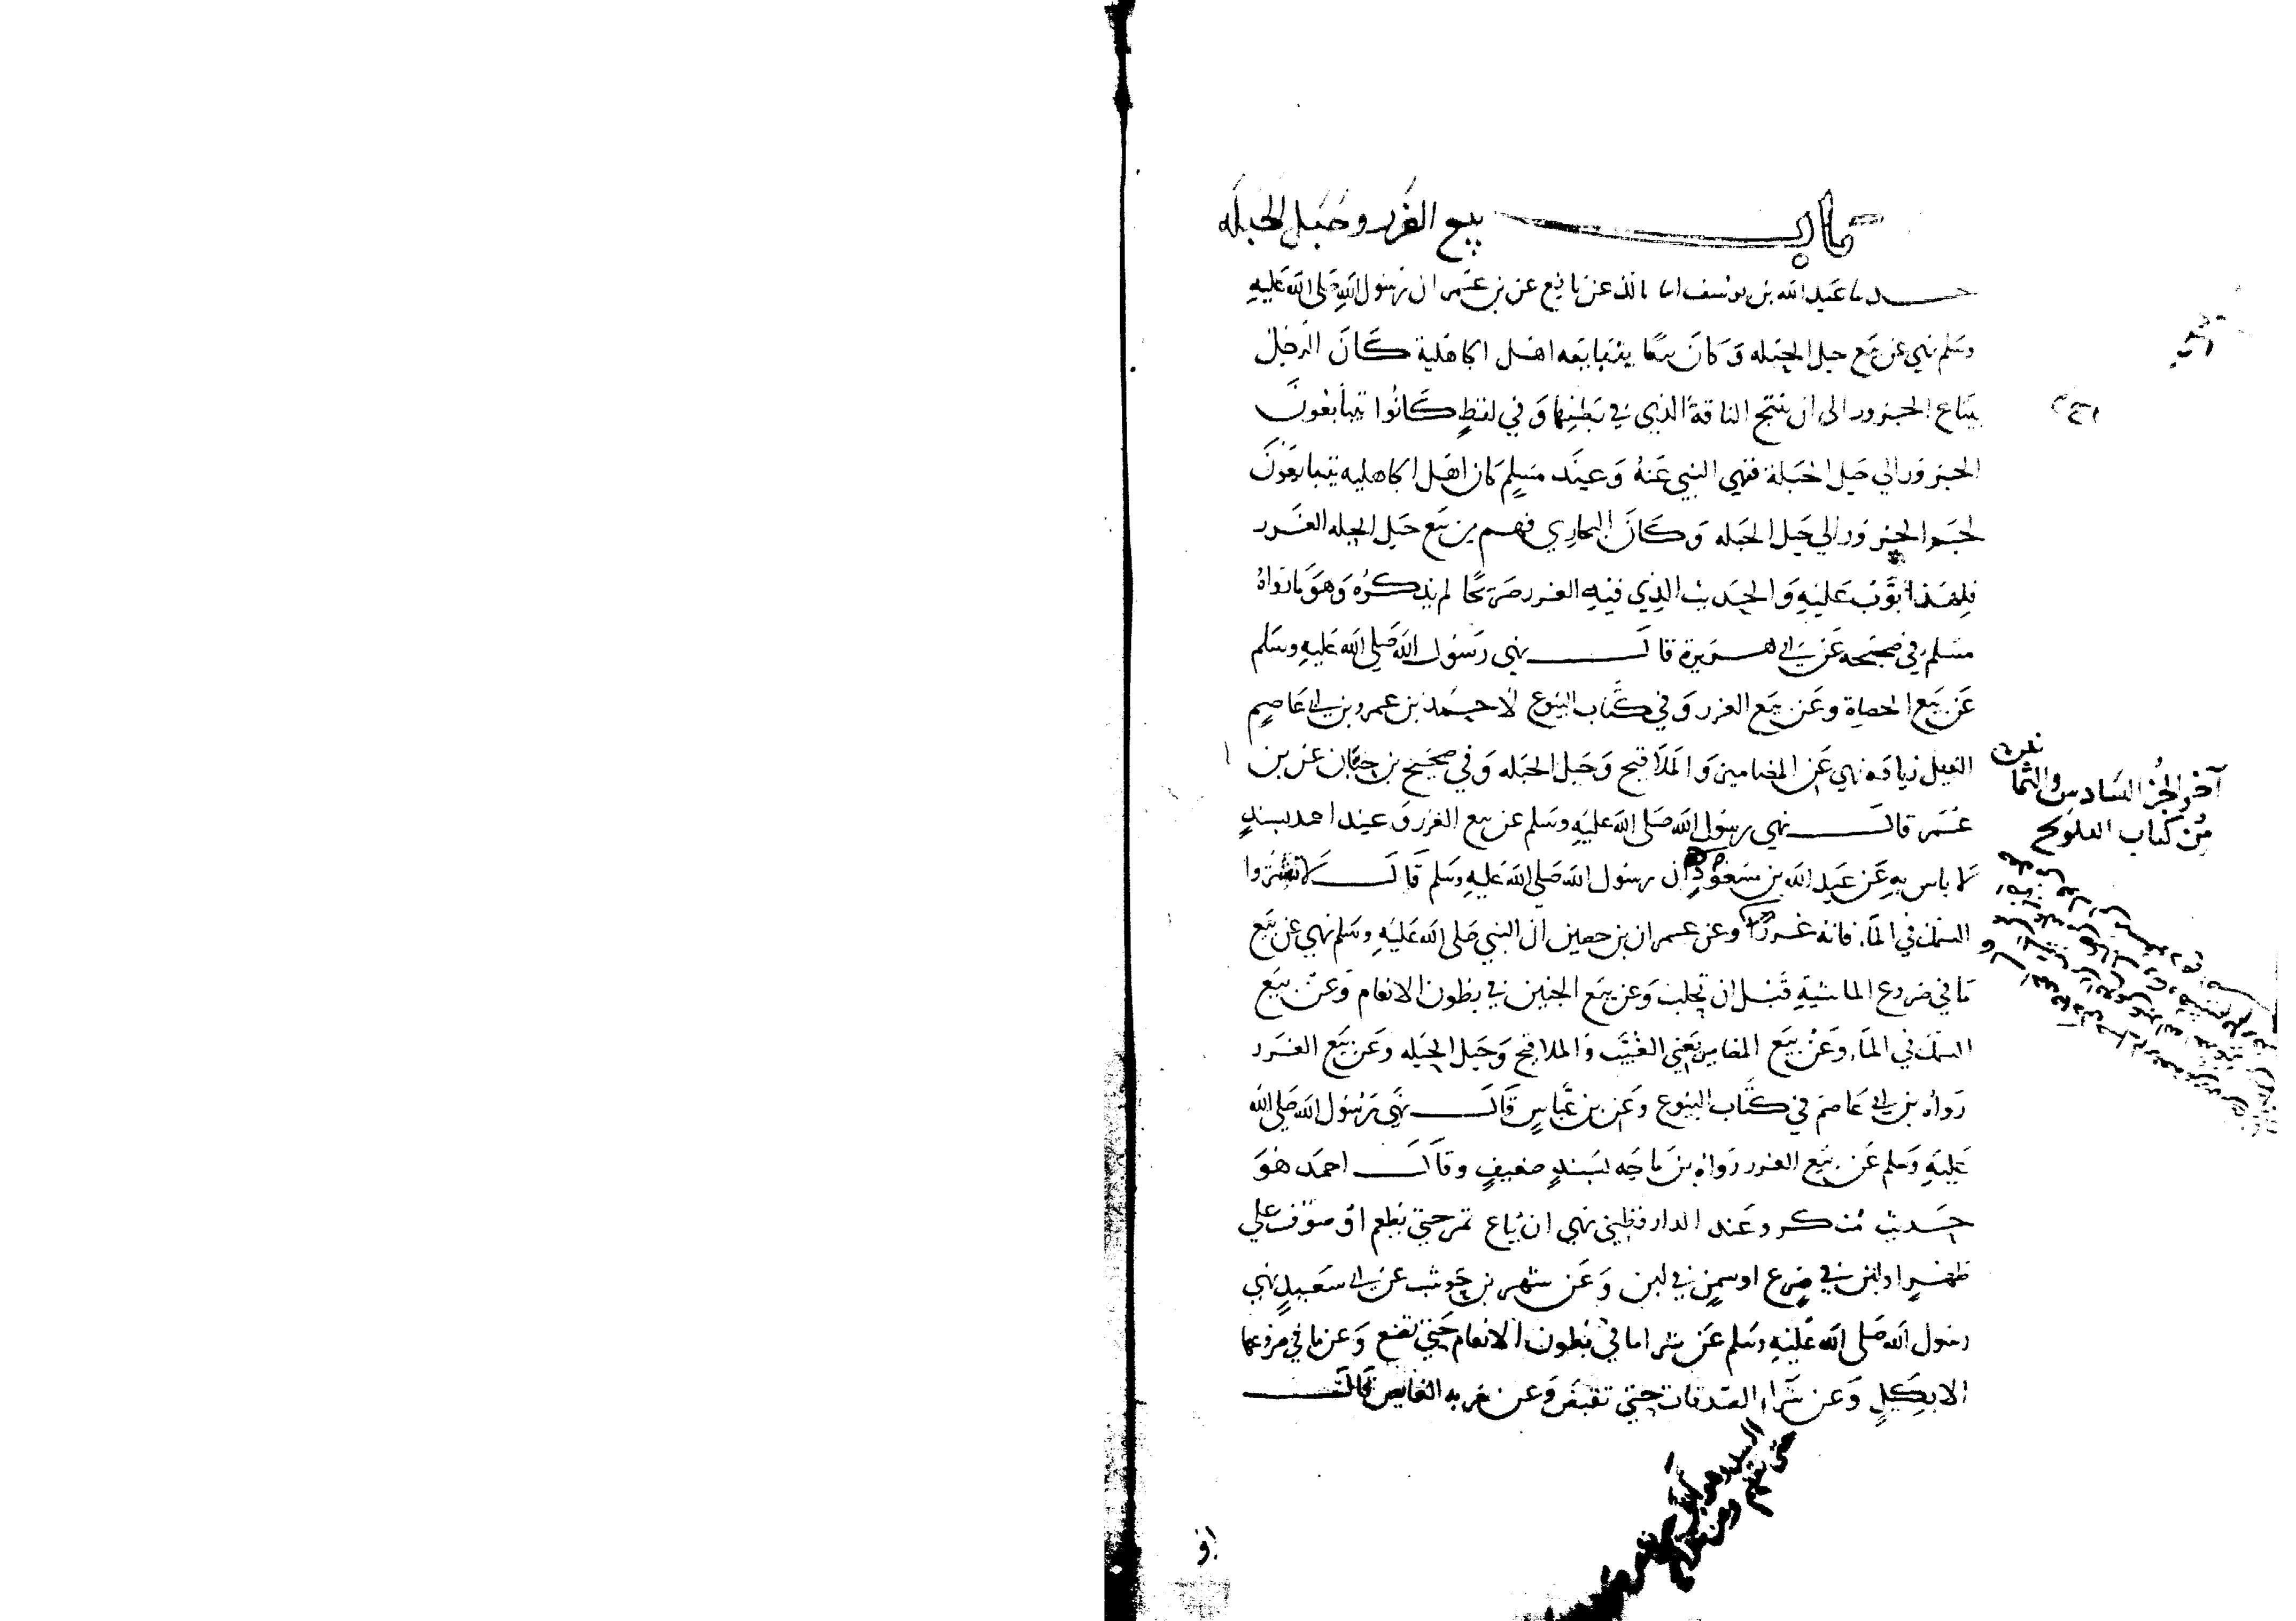 باب بيع الغرر وحبل الحبله
حدثنا عبد الله بن يوسف انا مالك عن نافع عن بن عمر ان رسول الله صلى الله عليه
وسلم نهي عن بيع حبل الحبله وَكانَ بيعًا يتبايعه اهل الجاهلية كَانَ الرجل
يبتاع الجزور الى ان تنتج الناقة الذي في بَطنِها وَفي لفظٍ كَانُوا يتبايعُونَ
الجزوَر الي حبل الحَبلة فنهي النبي عَنهُ وَعند مسلمٍ كان اهل الجاهليه يتبايعونَ
لحم الجزوَر الي حَبل الحَبله وَكَانَ البخاري فهم من بَيع حَبَل الحبله الغرر
فلهذا بَوَّبَ عَليهِ وَالحديث الذِي فيهِ الغرر صَريحًا لم يذكرُه وَهوَ مَا رَواهُ
مسلم في صحيحه عَن ابي هريرة قال نهي رسُول الله صَلي الله عَليهِ وسَلم
عَن بَيع الحصاةِ وعَن بيَع الغرر وَفي كتَاب البيُوع لاحمد بن عمرو بن ابي عَاصِمٍ
النبيل زيادة نهي عَن المضامين وَالمَلاقيح وَحَبل الحبَله وَفي صحيح بن حبان عَن بن
عُمَر قال نهي رسُول الله صَلى الله عَليهِ وسَلم عن بيع الغرر وَعند احمد بسندٍ
لا باس بهِ عَن عَبد الله بن مسعُودٍ ان رسُول الله صَلي الله عَليهِ وسَلم قَال لا تشتروا
السمك في المآء فانه غرر وعن عمران بن حصين ان النبي صَلى الله عَليهِ وسَلم نهي عن بَيع
مَا في ضروع الماشيةِ قَبل ان تحلب وَعن بيَع الجنين في بطُون الانعام وَعَن بَيع
السمك في المآء وَعَن بيَع المضامين وَالملاقيح وَحَبل الحبَله وعَن بَيع الغرَر
رَواه بن ابي عَاصم في كتَاب البيُوع وعَن بن عَبَّاسٍ قَال نهَي رَسُول الله صَلي الله
عَليهِ وَسَلم عَن بَيع الغرر رَواه بن مَاجَه بسَندٍ ضعيفٍ وقال احمَد هُوَ
حَديث مُنكر وعَند الدارقطني نهي ان تباع تمر حتي تطعم اوْ صوف علي
ظهرٍ او لبن في ضرع او سمنٍ في لبن وَعَن شهر بن حَوشب عَن ابي سعيدٍ نهي
رسُول الله صَلى الله عَليهِ وسَلم عَن شرا ما في بُطون الانعام حَتي تضع وَعن ما في ضروعها
الا بكيلٍ وَعن شَرآء الصَدقات حتي تقبض وَعن ضربه الغايص قال
آخر الجُز السَادس والثمانين
مِن كتاب التلويح